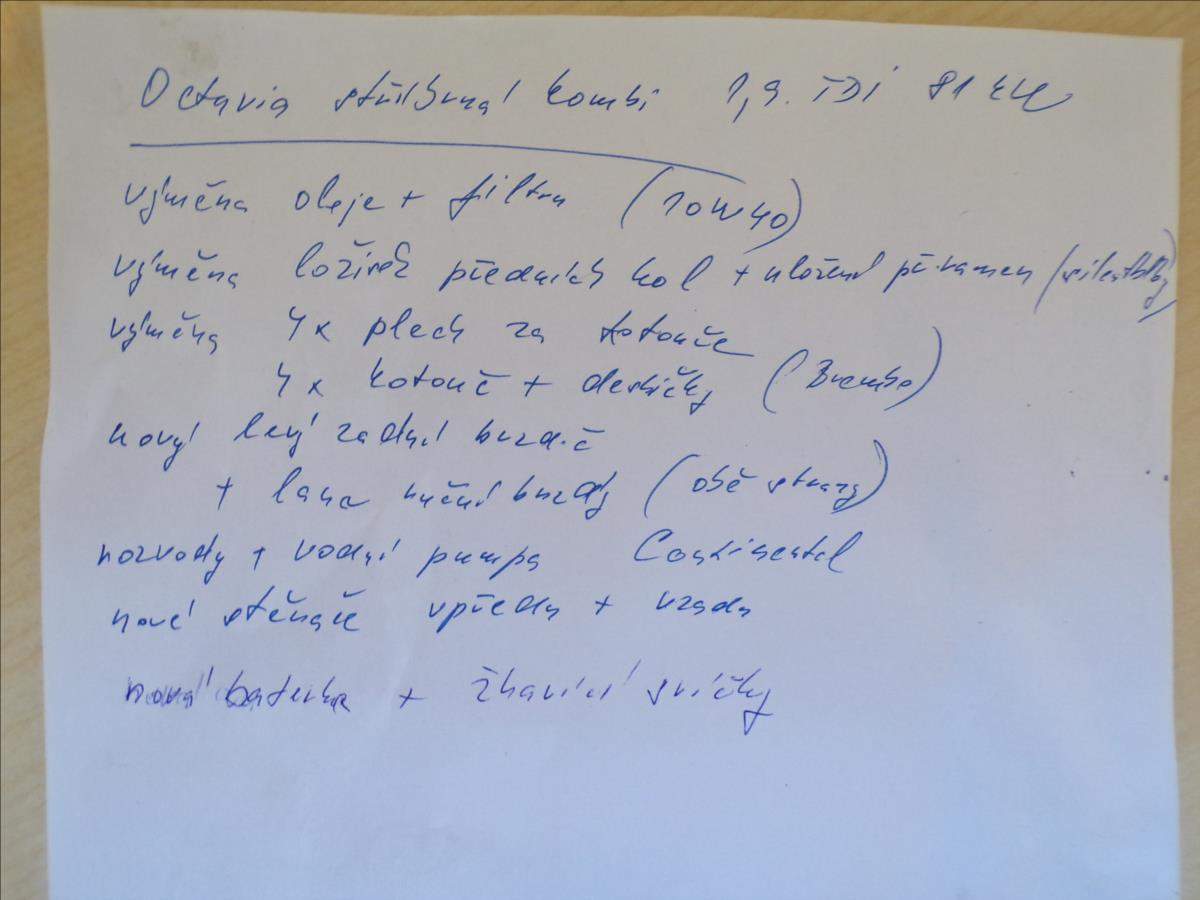 Octavia stříbrná kombi 1,9. TDi 81 kW
výměna oleje + filtru (10W40)
výměna ložisek předních kol + uložení př. ramen (silentbloky)
výměna 4x plech za kotouče
4x kotouč + destičky (Brembo)
nový levý zadní brzdič
+ lana ruční brzdy (obě strany)
rozvody + vodní pumpa Continental
nové stěrače vpředu + vzadu
nová baterka + žhavící svíčky